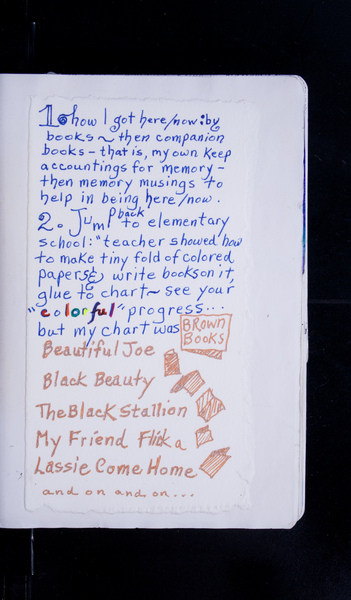 1. how I got here/now: by
books ~ then companion
books - that is, my own keep
accountings for memory -
then memory musings to
help in being here/now.
2. Jump back to elementary
school: "teacher showed how
to make tiny fold of colored
papers & write books on it,
glue to chart ~ see your
"colorful" progress...
but my chart was BROWN
BOOKS
Beautiful Joe
Black Beauty
The Black Stallion
My Friend Flicka
Lassie Come Home
and on and on...